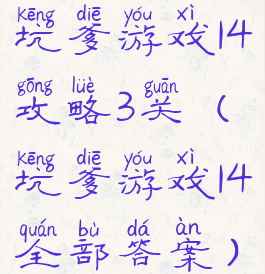 kēng diē yóu xì
坑爹游戏14
gōng lüè guān
攻略3关（
kēng diē yóu xì
坑爹游戏14
quán bù dá àn
全部答案）